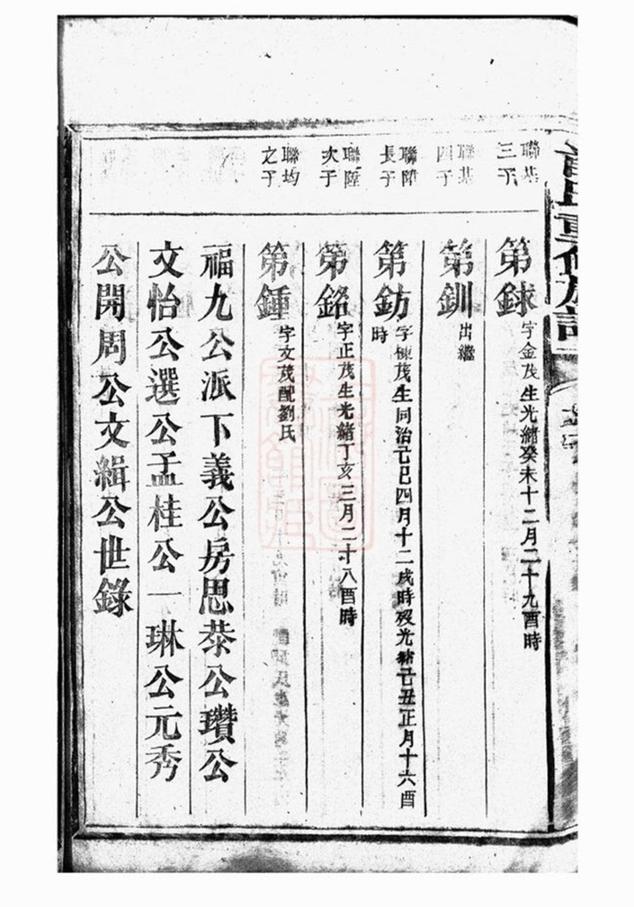 聯基三子
第銶 字金茂生光緒癸未十二月二十九酉時
聯基四子
第釧 出繼
聯陞長子
第鈁 字棟茂生同治己巳四月十二戌時歿光緒己丑正月十六酉時
聯陞次子
第銘 字正茂生光緒丁亥三月二十八酉時
聯均之子
第鍾 字文茂配劉氏
福九公派下義公房思恭公瓚公
文怡公選公孟桂公一琳公元秀
公開周公文緝公世錄